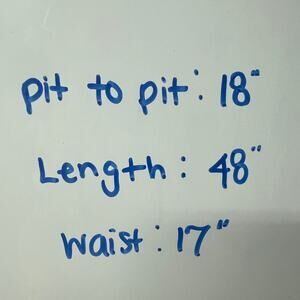 pit to pit: 18"
Length: 48"
waist: 17"